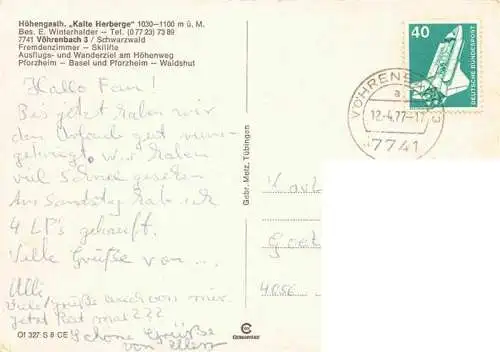 Höhengasth. „Kalte Herberge" 1030–1100 m ü. M.
Bes. E. Winterhalder – Tel. (0 77 23) 73 89
7741 Vöhrenbach 3 / Schwarzwald
Fremdenzimmer – Skilifte
Ausflugs- und Wanderziel am Höhenweg
Pforzheim – Basel und Pforzheim – Waldshut
Hallo Fam!
Bis jetzt haben wir
den Urlaub gut
Wir haben
viel Schnee gesehen
Am Samstag hab ich
4 LP's gekauft.
Viele Grüße von ...
Ulli
Viele Grüße auch von mir
jetzt
Schöne Grüße
von Ellen
OI 327 S 8 CE
Gebr. Metz, Tübingen
40
DEUTSCHE BUNDESPOST
VÖHRENB 3
a
12.4.77-17
7741